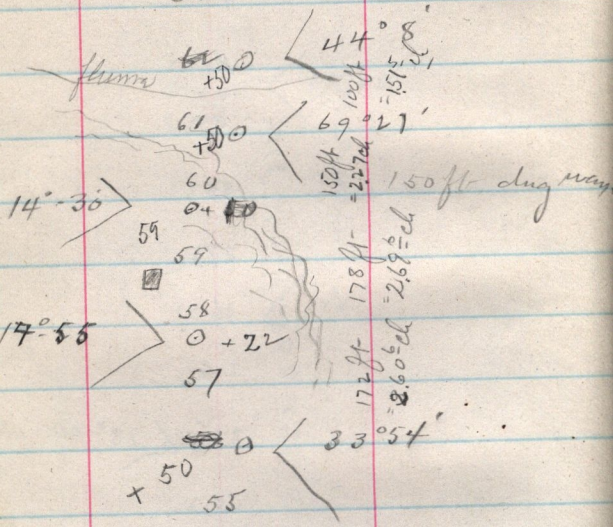 44° 8'
flume
+50
100ft
=1.515 ch
61
+50
69° 21'
150ft
=2.27ch
150 ft dug way
60
14°-30
+
59
59
178 ft
=2.69 ch
58
17°-55
+22
57
172 ft
=2.60 ch
33° 54'
50
x
55